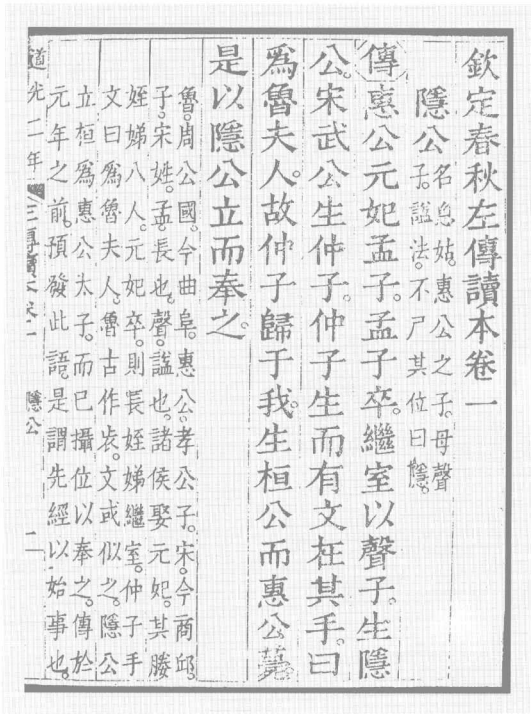 欽定春秋左傳讀本卷一
隱公
名息姑。惠公之子。母聲
子。諡法。不尸其位曰隱。
傳惠公元妃孟子。孟子卒。繼室以聲子。生隱
公。宋武公生仲子。仲子生而有文在其手。曰
爲魯夫人。故仲子歸于我。生桓公而惠公薨。
是以隱公立而奉之。
魯。周公國。今曲阜。惠公。孝公子。宋。今商邱。
子。宋姓。孟。長也。聲。諡也。諸侯娶元妃。其媵
姪娣八人。元妃卒。則長姪娣繼室。仲子手
文曰爲魯夫人。魯古作。文或似之。隱公
立桓爲惠公太子。而已攝位以奉之。傳於
元年之前。預發此語。是謂先經以始事也。
道光二年
隱公